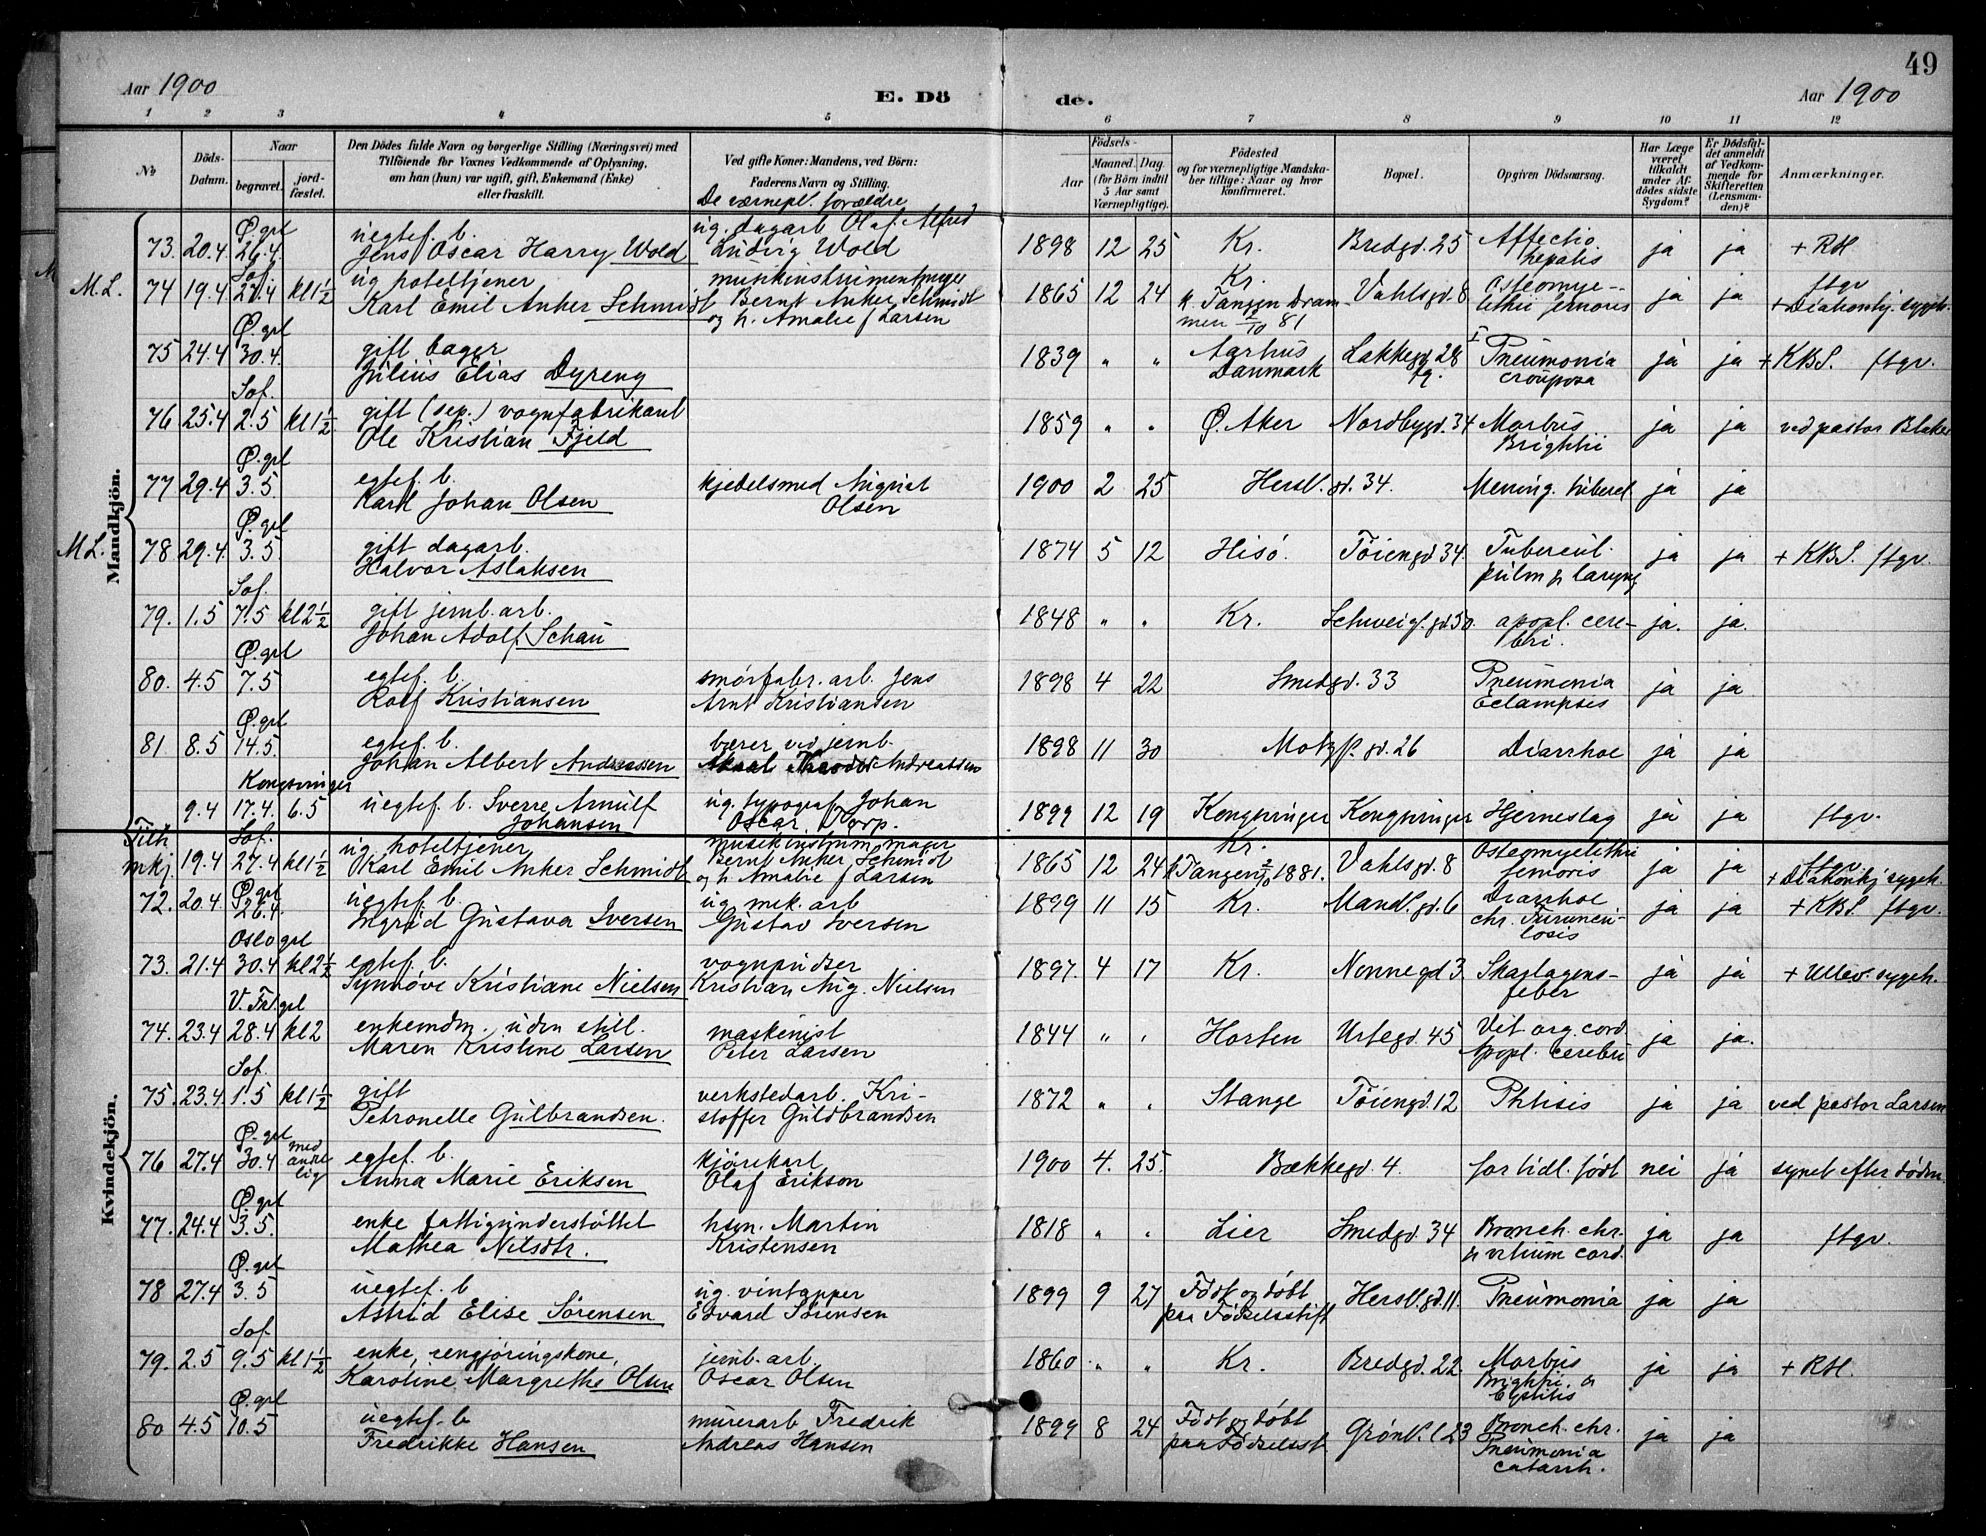 49
Aar 1900
E. Dö
de.
Aar 1900
1 2 3 4 5 6 7 8 9 10 11 12
No
Döds-
Datum.
Naar
begravet.
jord-
fæstet.
Den Dödes fulde Navn og borgerlige Stilling (Næringsvei) med
Tilföiende for Voxnes Vedkommende af Oplysning,
om han (hun) var ugift, gift, Enkemand (Enke)
eller fraskilt.
Ved gifte Koner: Mandens, ved Börn:
Faderens Navn og Stilling.
De værnepl. forældre
Födsels-
Aar
Maaned.
Dag.
(for Börn indtil
5 Aar samt
Værnepligtige).
Födested
og for værnepligtige Mandska-
ber tillige: Naar og hvor
konfirmeret.
Bopæl.
Opgiven Dödsaarsag.
Har Læge
været
tilkaldt
under Af-
dödes sidste
Sygdom?
Er Dödsfal-
det anmeldt
af Vedkom-
mende for
Skifteretten
(Lensman-
den)?
Anmærkninger.
Mandkjön.
73. 20.4 Ø. grl 26.4. uegtef. b. Jens Oscar Harry Wold ug. dagarb Olaf Alfred Ludvig Wold 1898 12 25 Kr. Bredgd. 25 Affectio hepatis ja ja + RH
M.L. 74 19.4 Sof. 27.4 kl 1½ ug hoteltjener Karl Emil Anker Schmidt musikinstrumentmager Bernt Anker Schmidt og h. Amalie f Larsen 1865 12 24 Kr. k Tangen Drammen 2/10 81 Vahlsgd. 8 Osteomyelithii femoris ja ja ftgv + Diakonhj. sygeh.
75 24.4 Ø. grl 30.4. gift bager Julius Elias Dyreng 1839 " " Aarhus Danmark Lakkegd 28 Pneumonia crouposa ja ja + KBS. ftgv.
76 25.4 Sof. 2.5 kl 1½ gift (sep.) vognfabrikant Ole Kristian Fjeld 1859 " " Ø. Aker Nordbygd. 34 Morbus Brightii ja ja ved pastor Blaker
77 29.4 Ø. grl 3.5 egtef. b. Karl Johan Olsen kjedelsmed August Olsen 1900 2 25 Hersl. gd. 34. Mening. tubercl ja ja
M L. 78 29.4 Ø. grl 3.5. gift dagarb. Halvor Aslaksen 1874 5 12 Hisö. Töiengd 34. Tubercul. pulm & laryng ja ja + KBS. ftgv.
79. 1.5 Sof. 7.5 kl 2½ gift jernb. arb. Johan Adolf Schau 1848 " " Kr. Schweig. gd. 50. apopl. cerebri. ja. ja.
80. 4.5 Ø. grl 7.5 egtef. b. Rolf Kristiansen smørfabr. arb. Jens Arnt Kristiansen 1898 4 22 Smedgd. 33 Pneumonia Eclampsis ja ja
81 8.5 Ø. grl 14.5. egtef. b. Johan Albert Andreassen bærer ved jernb. Andreassen 1898 11 30 Motzf. gd. 26 Diarrhoe ja ja
9.4 Kongsvinger 17.4. 6.5 uegtef. b. Sverre Arnulf Johansen ug. typograf Johan Oscar Korp. 1899 12 19 Kongsvinger Kongsvinger Hjerneslag ja ja ftgv.
Tilh. mkj. 19.4 Sof. 27.4 kl 1½ ug. hoteltjener Karl Emil Anker Schmidt musikinstrum. mager Bernt Anker Schmidt og h. Amalie f Larsen 1865 12 24 Kr. k Tangen 2/10 1881. Vahlsgd. 8 Osteomyelithii femoris ja ja ftgv + Diakonhj sygeh.
Kvindekjön.
72. 20.4 Ø. grl 26.4. uegtef. b. Ingrid Gustava Iversen ug mek. arb Gustav Iversen 1899 11 15 Kr. Mandl. gd. 6 Diarrhoe chr. Furunculosis ja ja + KBS. ftgv.
73. 21.4 Oslo grl 30.4 kl 2½ egtef. b. Synnöve Kristiane Nielsen vognpudser Kristian Aug. Nielsen 1897. 4 17 Kr. Nonnegd 3. Skarlagensfeber ja ja + Ullev. sygeh.
74. 23.4 V. Fr. grl 28.4 kl 2 enkemdm. uden still. Maren Kristine Larsen maskinist Peter Larsen 1844 " " Horten Urtegd. 45 Vit. org. cord. Apopl. cerebri ja ja.
75. 23.4 Sof. 1.5 kl 1½ gift Petronelle Gulbrandsen. verkstedarb. Kristoffer Guldbrandsen 1872 " " Stange Töiengd. 12 Phtisis ja ja ved pastor Larsen
76 27.4 Ø. grl 30.4 med andet lig egtef. b. Anna Marie Eriksen kjørekarl Olaf Erikson 1900 4. 25. Bækkegd. 4. for tidl. født nei ja synet efter døden.
77. 24.4 Ø. grl 3.5. enke fattigunderstøttet Mathea Nilsdtr. hsm. Martin Kristensen 1818 " " Lier Smedgd. 34 Bronch. chr. & vitium cord. ja ja ftgv.
78 27.4 Ø. grl 3.5 uegtef. b Astrid Elise Sörensen ug. vintapper Edvard Sörensen 1899 9 27 Födt og döbt paa Födselsstift Hersl. gd. 11. Pneumonia ja ja
79. 2.5 Sof 9.5 kl 1½ enke, rengjøringskone, Karoline Margrethe Olsen jernb. arb. Oscar Olsen 1860 " " Kr. Bredgd. 22. Morbus Brightii. & Cystitis ja ja + RH.
80 4.5 Ø. grl 10.5 uegtef. b Fredrikke Hansen murerarb Fredrik Andreas Hansen 1899 8 24 Födt og döbt paa Födselsst Grønl. l 23 Bronch. chr. Pneumonia catarrh. ja ja